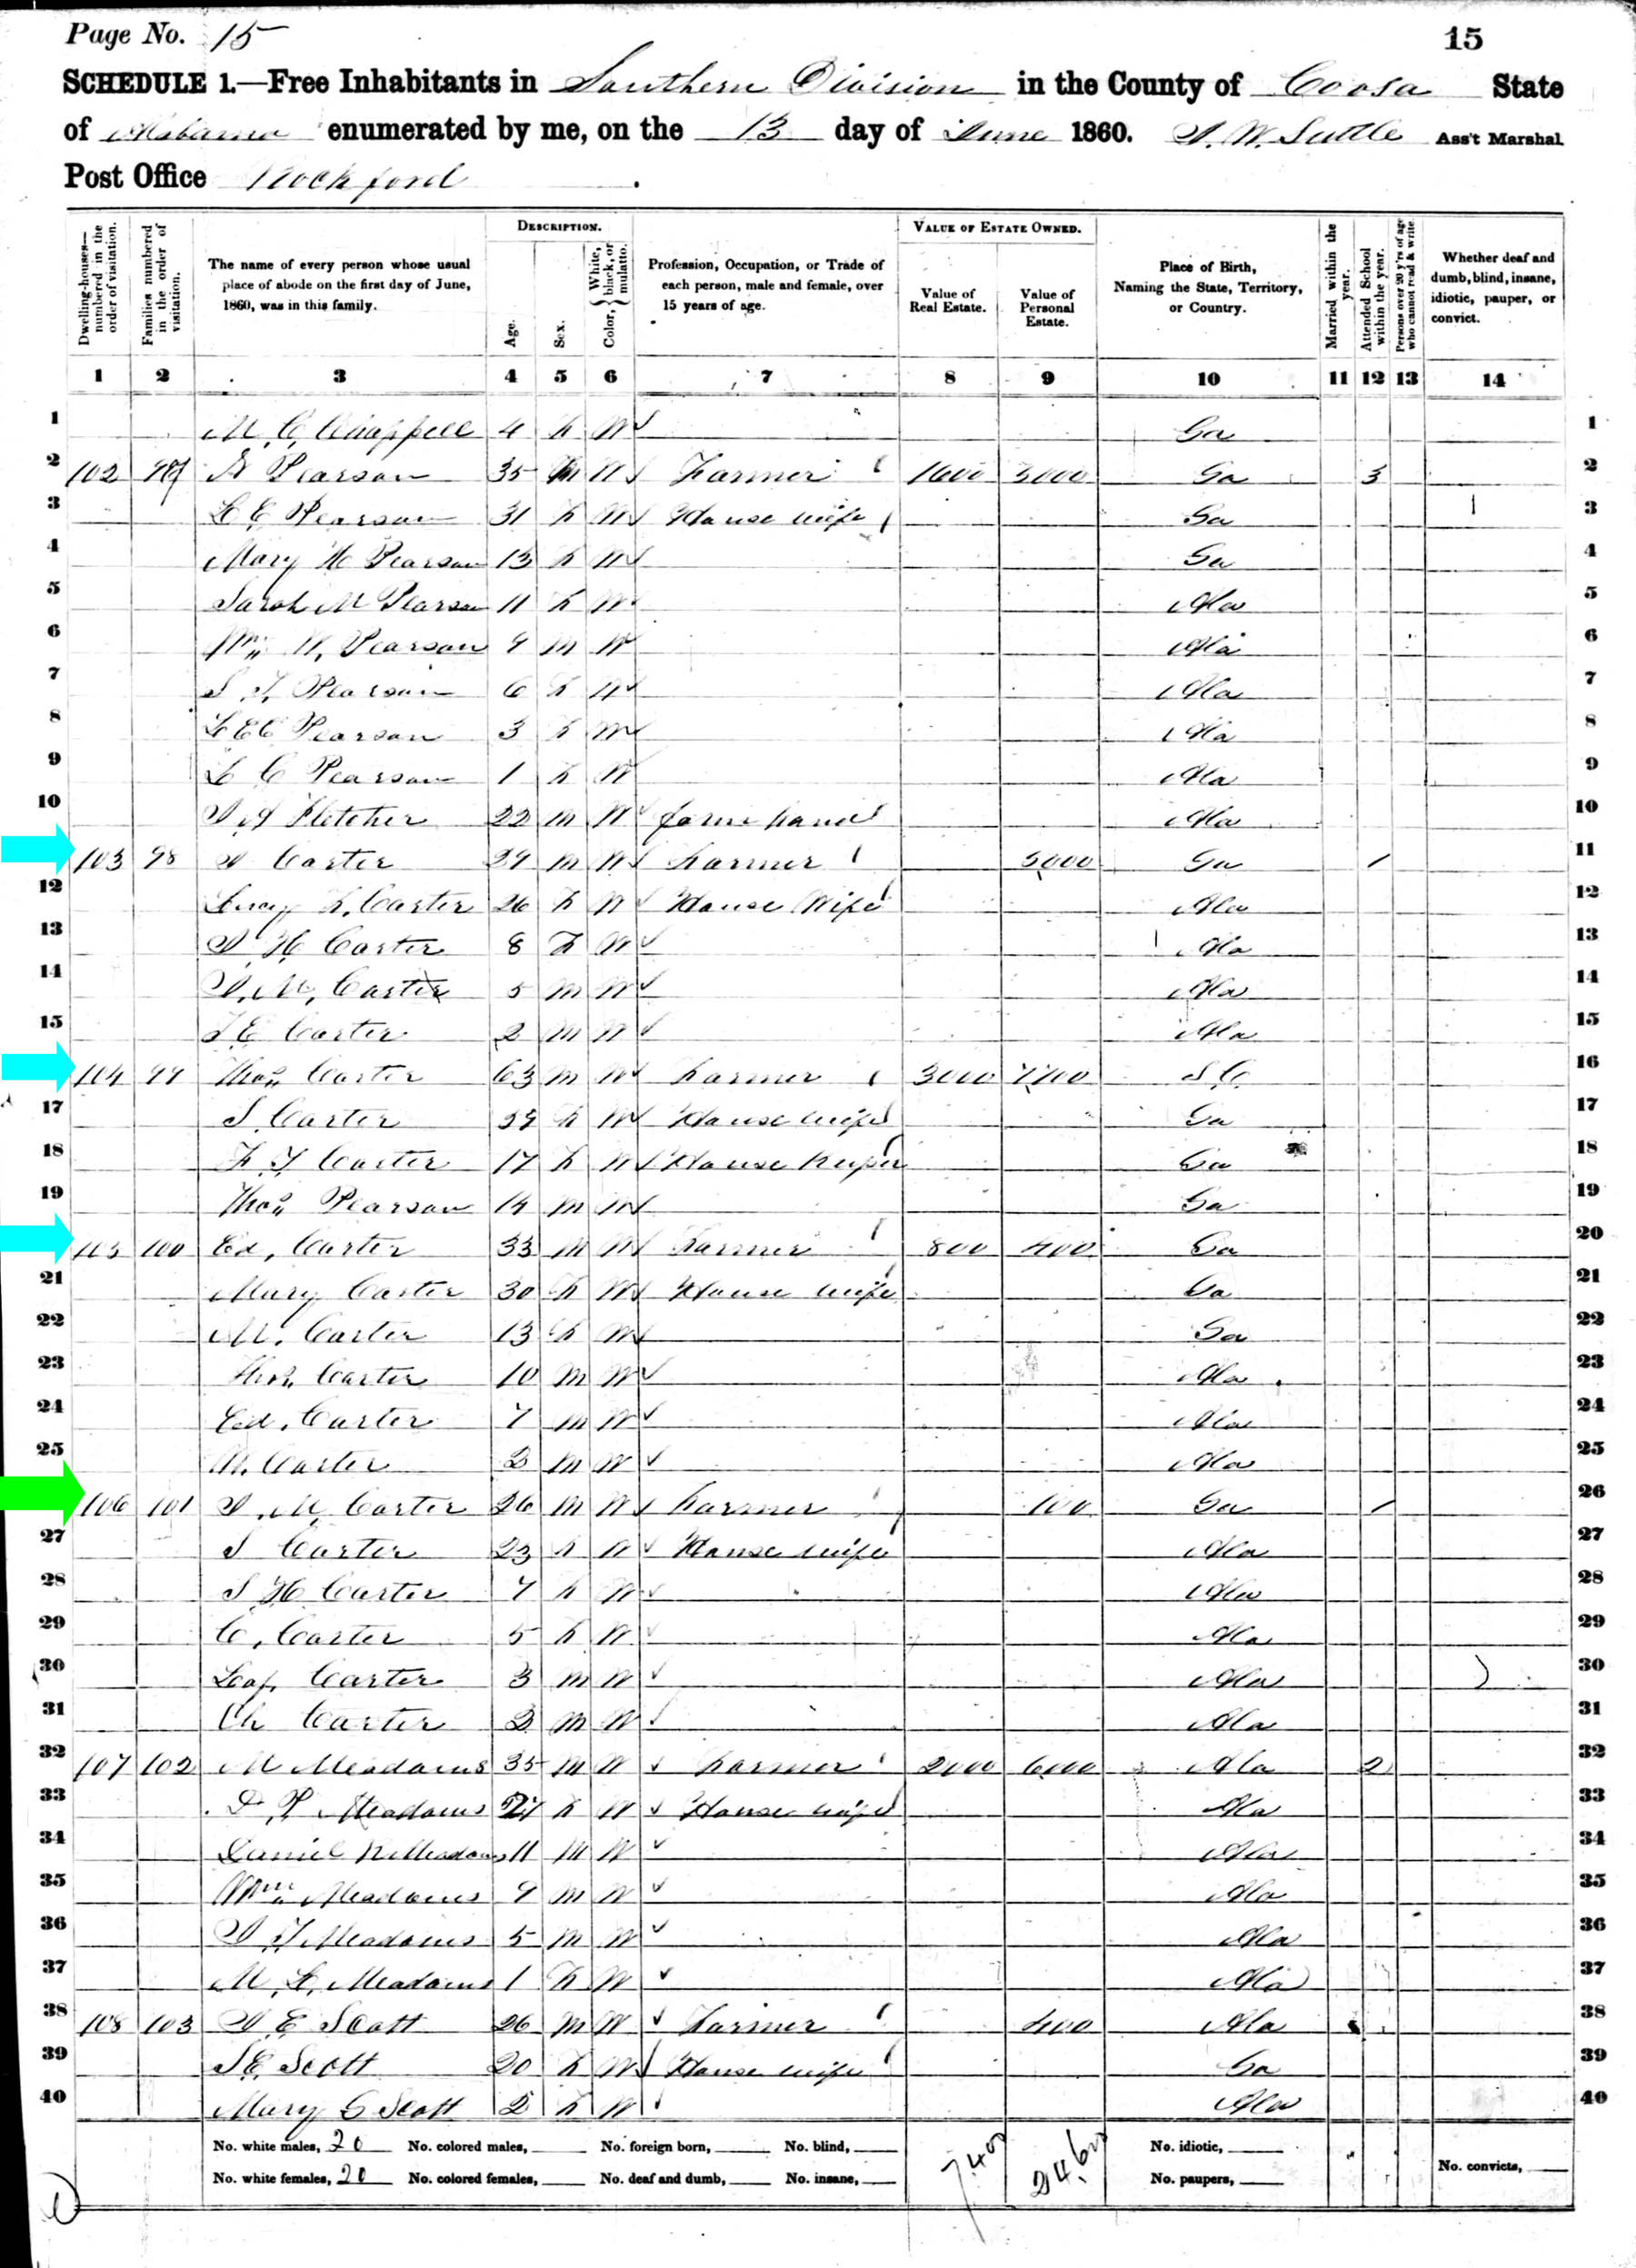 Page No. 15 15
SCHEDULE 1.—Free Inhabitants in Southern Division in the County of Coosa State
of Alabama enumerated by me, on the 13 day of June 1860. A. W. Suttle Ass't Marshal
Post Office Rockford
DESCRIPTION. VALUE OF ESTATE OWNED.
Dwelling-houses—numbered in the order of visitation. Families numbered in the order of visitation. The name of every person whose usual place of abode on the first day of June, 1860, was in this family. Age. Sex. Color, White, black, or mulatto. Profession, Occupation, or Trade of each person, male and female, over 15 years of age. Value of Real Estate. Value of Personal Estate. Place of Birth, Naming the State, Territory, or Country. Married within the year. Attended School within the year. Persons over 20 y'rs of age who cannot read & write. Whether deaf and dumb, blind, insane, idiotic, pauper, or convict.
1 2 3 4 5 6 7 8 9 10 11 12 13 14
1 M. C. Chappell 4 f W Ga 1
2 102 97 Pearson 35 m W Farmer 1600 3000 Ga 3 2
3 Pearson 31 f W House wife Ga 1 3
4 Mary H Pearson 13 f W Ga 4
5 Sarah M Pearson 11 f W Ala 5
6 Wm W. Pearson 9 m W Ala 6
7 S. T. Pearson 6 f W Ala 7
8 Pearson 3 f W Ala 8
9 L C Pearson 1 f W Ala 9
10 Fletcher 22 m W farm hand Ala 10
11 103 98 Carter 29 m W Farmer 5000 Ga / 11
12 Carter 26 f W House Wife Ala 12
13 H Carter 8 f W Ala 13
14 M. Carter 5 m W Ala 14
15 T E Carter 2 m W Ala 15
16 104 99 Thos Carter 63 m W Farmer 3000 7700 S C. 16
17 S. Carter f W House wife Ga 17
18 F T Carter 17 f W House Keeper Ga 18
19 Thos Pearson 14 m W Ga 19
20 105 100 Ed, Carter 33 m W Farmer 800 400 Ga 20
21 Mary Carter 30 f W House wife Ga 21
22 M. Carter 13 f W Ga 22
23 Thos. Carter 10 m W Ala 23
24 Ed. Carter 7 m W Ala 24
25 Carter 2 m W Ala 25
26 106 101 M. Carter 26 m W Farmer 100 Ga / 26
27 S Carter 23 f W House wife Ala 27
28 S H Carter 7 f W Ala 28
29 C. Carter 5 f W Ala 29
30 Carter 3 m W Ala 30
31 Ch Carter 2 m W Ala 31
32 107 102 M Meadams 35 m W Farmer 2000 6000 Ala 2 32
33 Meadams 27 f W House wife Ala 33
34 Daniel Meadams 11 m W Ala 34
35 Wm Meadams 9 m W Ala 35
36 Meadams 5 m W Ala 36
37 M. Meadams 1 f W Ala 37
38 108 103 E Scott 26 m W Farmer 400 Ala 38
39 S E Scott 20 f W House wife Ga 39
40 Mary Scott 2 f W Ala 40
No. white males, 20 No. colored males, No. foreign born, No. blind, No. idiotic,
No. white females, 20 No. colored females, No. deaf and dumb, No. insane, No. paupers, No. convicts,